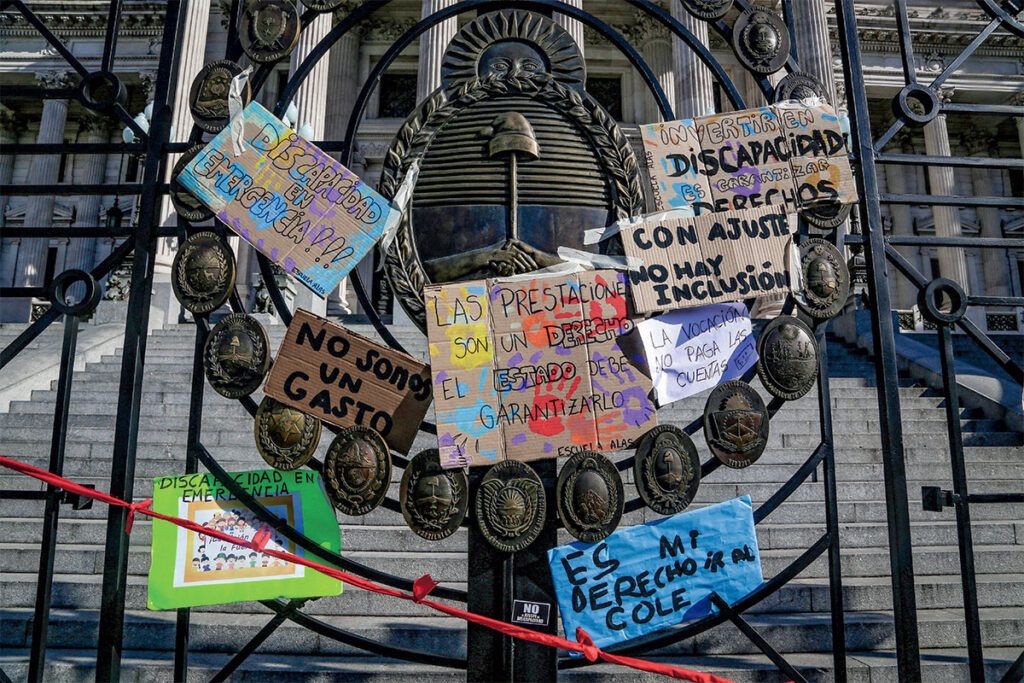 DISCAPACIDAD
EN
EMERGENCIA!!!
INVERTIR EN
DISCAPACIDAD
ES GARANTIZAR
DERECHOS
ESCUELA ALAS
CON AJUSTE
NO HAY
INCLUSIÓN
LAS PRESTACIONE
SON UN DERECHO
EL ESTADO DEBE
GARANTIZARLO
ESCUELA ALAS
LA VOCACIÓN
NO PAGA LAS
CUENTAS
NO SOMOS
UN
GASTO
DISCAPACIDAD EN
EMERGENCIA
la fuerza
ES MI
DERECHO IR AL
COLE
NO